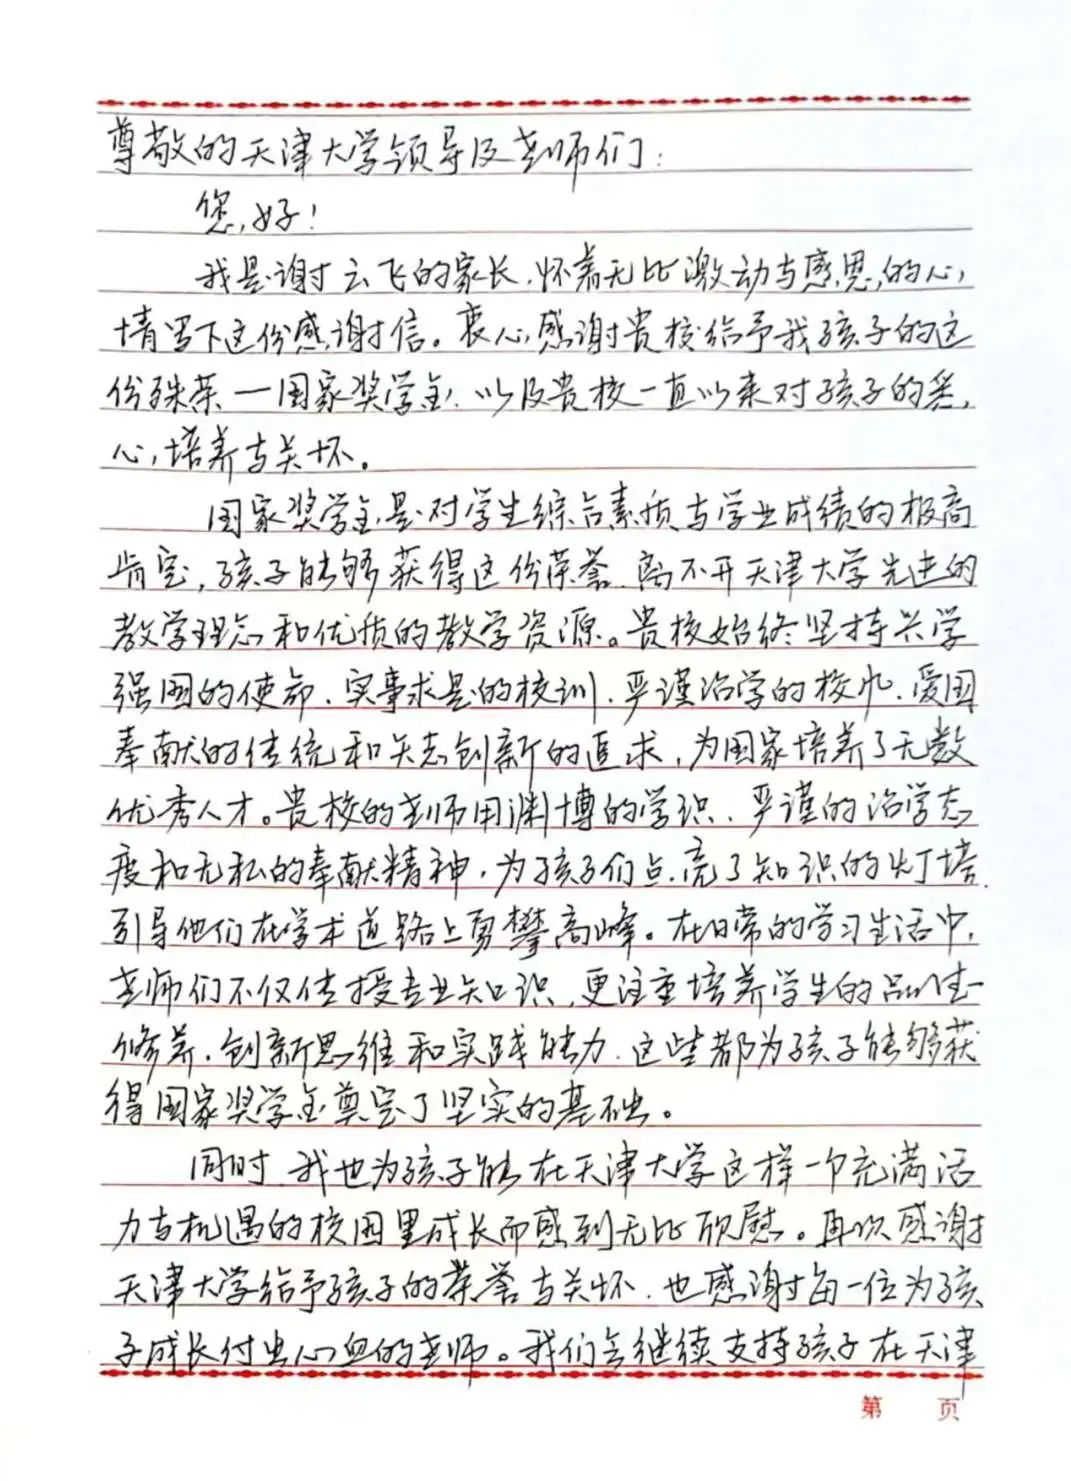 尊敬的天津大学领导及老师们：
您好！
我是谢云飞的家长，怀着无比激动与感恩的心
情写下这份感谢信。衷心感谢贵校给予我孩子的这
份殊荣—国家奖学金，以及贵校一直以来对孩子的悉
心培养与关怀。
国家奖学金是对学生综合素质与学业成绩的极高
肯定，孩子能够获得这份荣誉，离不开天津大学先进的
教学理念和优质的教学资源。贵校始终坚持兴学
强国的使命、实事求是的校训、严谨治学的校风、爱国
奉献的传统和矢志创新的追求，为国家培养了无数
优秀人才。贵校的老师用渊博的学识、严谨的治学态
度和无私的奉献精神，为孩子们点亮了知识的灯塔，
引导他们在学术道路上勇攀高峰。在日常的学习生活中，
老师们不仅传授专业知识，更注重培养学生的品性
修养、创新思维和实践能力，这些都为孩子能够获
得国家奖学金奠定了坚实的基础。
同时，我也为孩子能在天津大学这样一个充满活
力与机遇的校园里成长而感到无比欣慰。再次感谢
天津大学给予孩子的荣誉与关怀，也感谢每一位为孩
子成长付出心血的老师。我们会继续支持孩子在天津
第 页